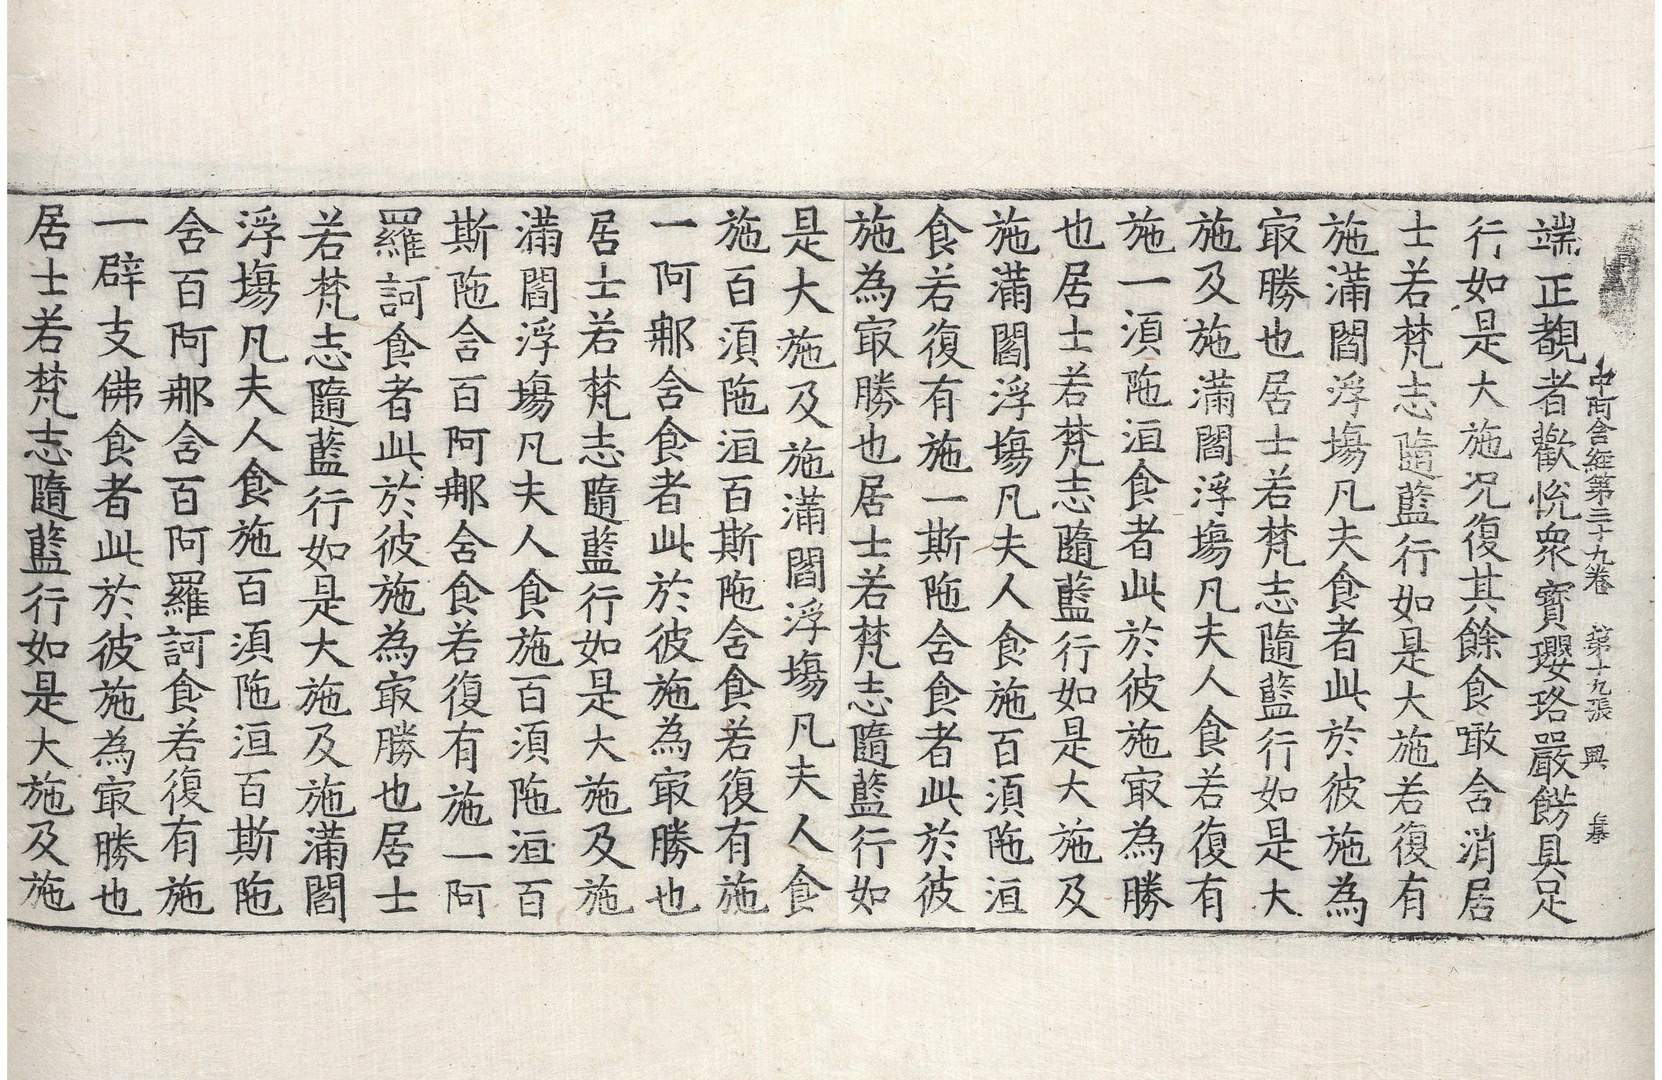 中阿含經第三十九卷 第十九張 興
端正覩者歡悅衆寶瓔珞嚴餝具足
行如是大施況復其餘食噉含消居
士若梵志隨藍行如是大施若復有
施滿閻浮塲凡夫食者此於彼施為
㝡勝也居士若梵志隨藍行如是大
施及施滿閻浮塲凡夫人食若復有
施一湏陁洹食者此於彼施㝡為勝
也居士若梵志隨藍行如是大施及
施滿閻浮塲凡夫人食施百湏陁洹
食若復有施一斯陁含食者此於彼
施為㝡勝也居士若梵志隨藍行如
是大施及施滿閻浮塲凡夫人食
施百湏陁洹百斯陁含食若復有施
一阿那含食者此於彼施為㝡勝也
居士若梵志隨藍行如是大施及施
滿閻浮塲凡夫人食施百湏陁洹百
斯陁含百阿那含食若復有施一阿
羅訶食者此於彼施為㝡勝也居士
若梵志隨藍行如是大施及施滿閻
浮塲凡夫人食施百湏陁洹百斯陁
含百阿那含百阿羅訶食若復有施
一辟支佛食者此於彼施為㝡勝也
居士若梵志隨藍行如是大施及施